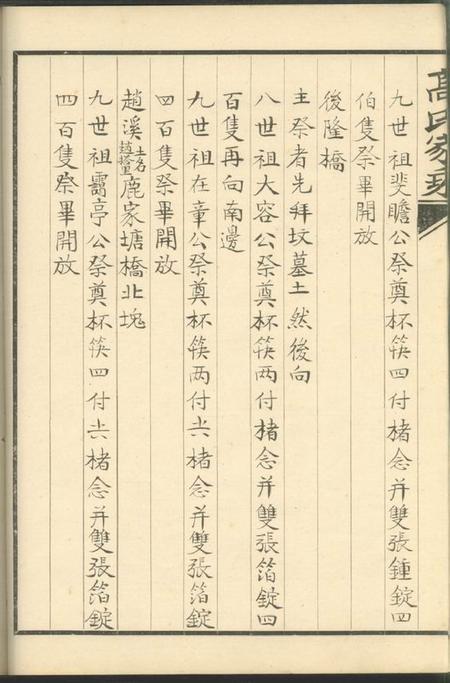 高氏家
九世祖斐瞻公祭奠杯筷四付楮念并雙張錘錠四
伯隻祭畢開放
後隆橋
主祭者先拜坟墓土然後向
八世祖大容公祭奠杯筷两付楮念并雙張箔錠四
百隻再向南邊
九世祖在章公祭奠杯筷两付六楮念并雙張箔錠
四百隻祭畢開放
趙溪土名鹿家塘橋北塊
九世祖霱亭公祭奠杯筷四付六楮念并雙張箔錠
四百隻祭畢開放